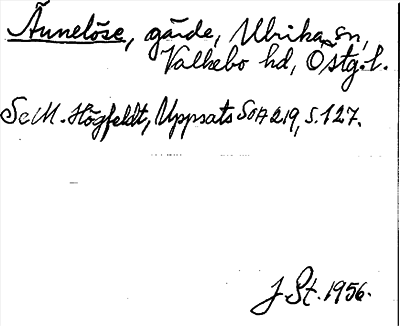 Ånnelöse, gärde, Ulrika sn,
Valkebo hd, Östg.l.
Se M. Högfeldt, Uppsats SOA 219, s.127.
J St. 1956.